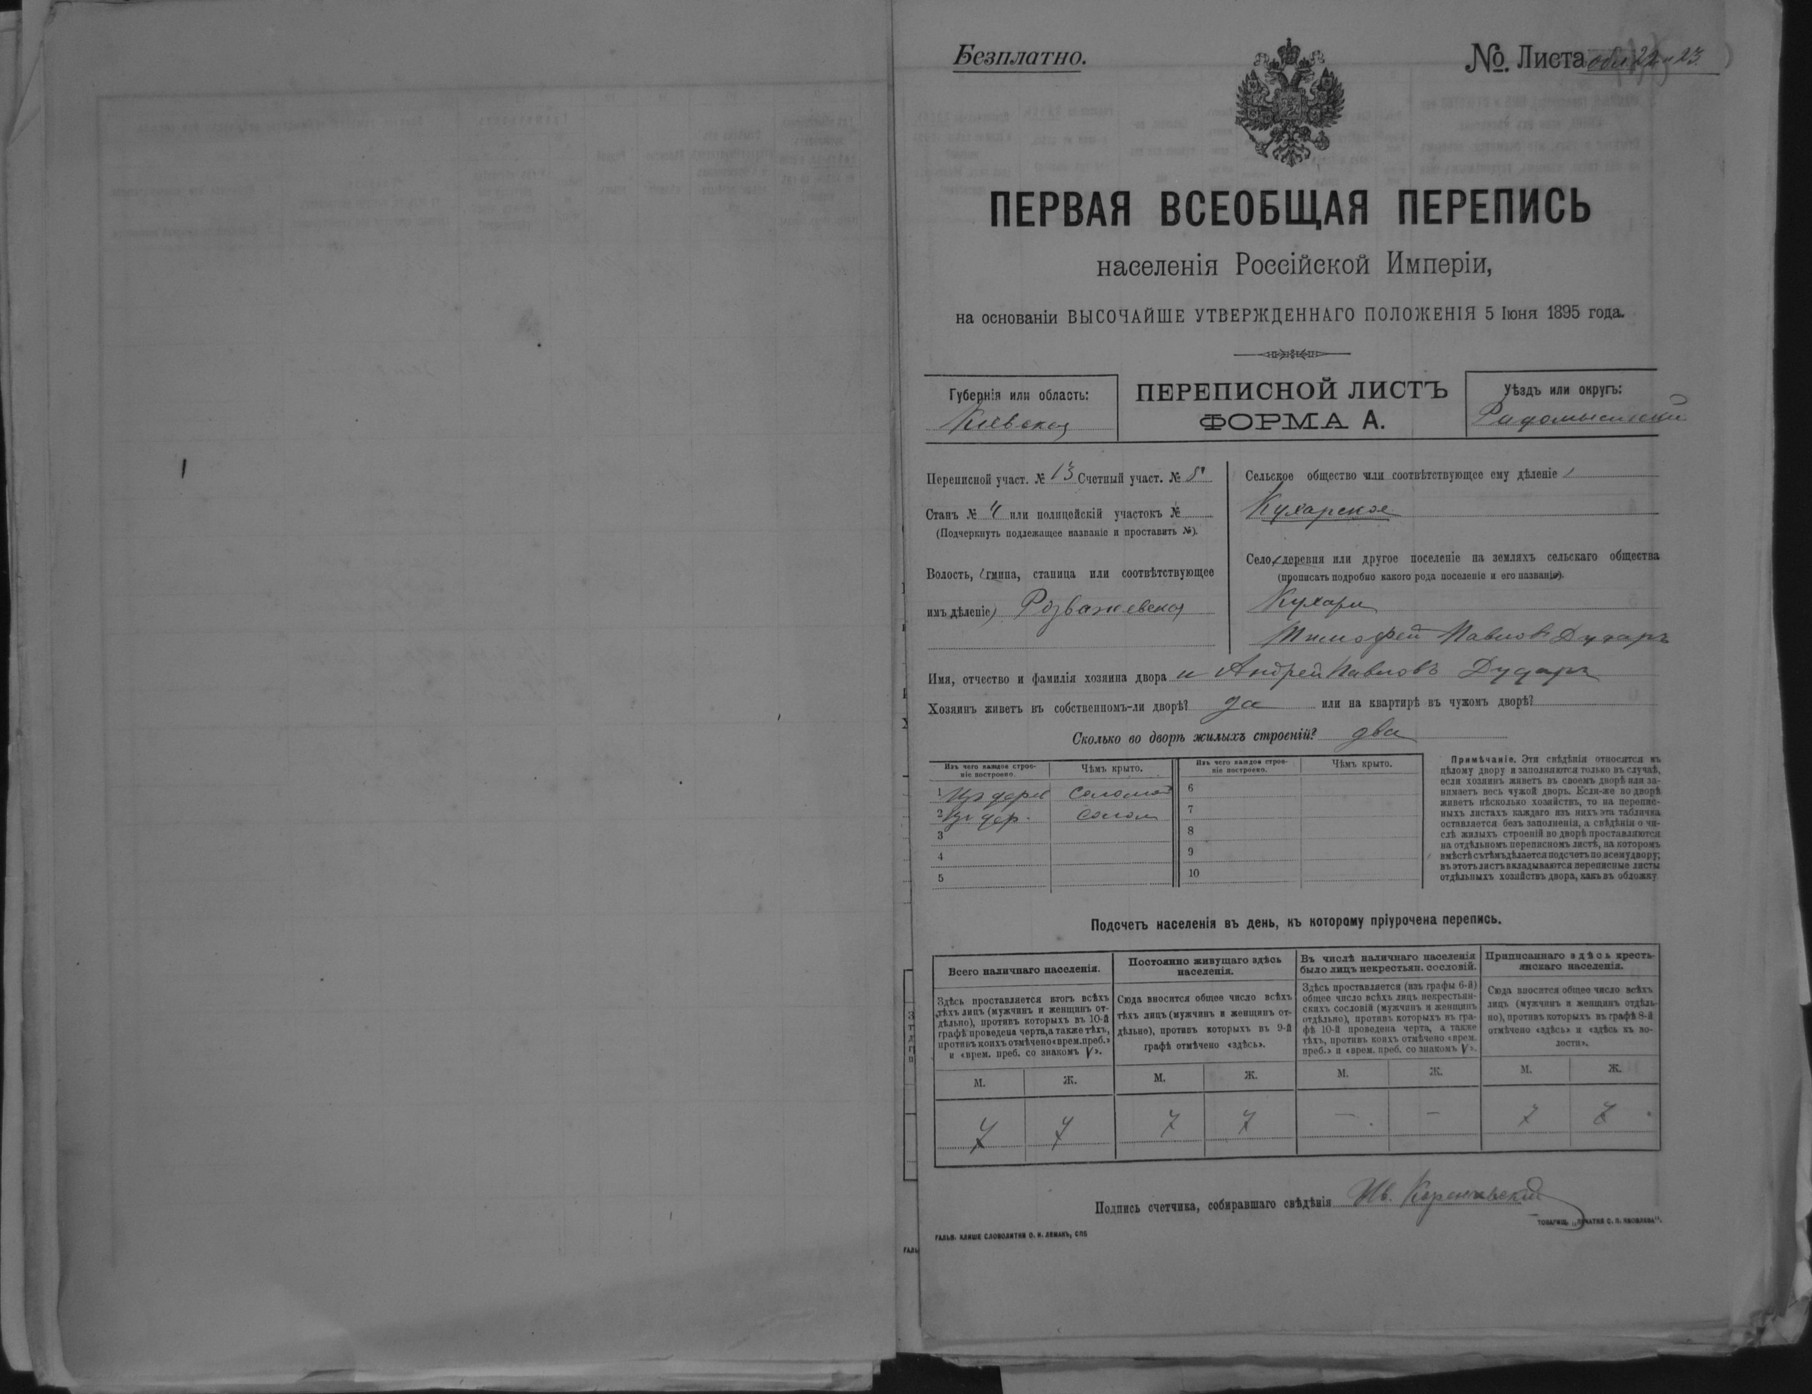 Безплатно.
№ Листа обл 22 и 23
ПЕРВАЯ ВСЕОБЩАЯ ПЕРЕПИСЬ
населенія Россійской Имперіи,
на основаніи ВЫСОЧАЙШЕ УТВЕРЖДЕННАГО ПОЛОЖЕНІЯ 5 Іюня 1895 года.
Губернія или область:
Кіевская
ПЕРЕПИСНОЙ ЛИСТЪ
ФОРМА А.
Уѣздъ или округъ:
Радомысльскій
Переписной участ. № 13 Счетный участ. № 8
Станъ № 4 или полицейскій участокъ №
(Подчеркнуть подлежащее названіе и проставить №).
Волость, (гмина, станица или соотвѣтствующее
имъ дѣленіе) Розважевская
Сельское общество или соотвѣтствующее ему дѣленіе
Кухарское
Село, деревня или другое поселеніе на земляхъ сельскаго общества
(прописать подробно какого рода поселеніе и его названіе).
Кухари
Тимофей Павловъ Дударъ
Имя, отчество и фамилія хозяина двора и Андрей Павловъ Дударъ
Хозяинъ живетъ въ собственномъ-ли дворѣ? да или на квартирѣ въ чужомъ дворѣ?
Сколько во дворѣ жилыхъ строеній? два
Изъ чего каждое строе-
ніе построено.
Чѣмъ крыто.
Изъ чего каждое строе-
ніе построено.
Чѣмъ крыто.
1 Изъ дерев соломой
2 Изъ дер. солом
3
4
5
6
7
8
9
10
Примѣчаніе. Эти свѣдѣнія относятся къ
цѣлому двору и заполняются только въ случаѣ,
если хозяинъ живетъ въ своемъ дворѣ или за-
нимаетъ весь чужой дворъ. Если-же во дворѣ
живетъ нѣсколько хозяйствъ, то на перепис-
ныхъ листахъ каждаго изъ нихъ эта табличка
оставляется безъ заполненія, а свѣдѣнія о чи-
слѣ жилыхъ строеній во дворѣ проставляются
на отдѣльномъ переписномъ листѣ, на которомъ
вмѣстѣ съ тѣмъ дѣлается подсчетъ по всему двору;
въ этотъ листъ вкладываются переписные листы
отдѣльныхъ хозяйствъ двора, какъ въ обложку.
Подсчетъ населенія въ день, къ которому пріурочена перепись.
Всего наличнаго населенія.
Здѣсь проставляется итогъ всѣхъ
тѣхъ лицъ (мужчинъ и женщинъ от-
дѣльно), противъ которыхъ въ 10-й
графѣ проведена черта, а также тѣхъ,
противъ коихъ отмѣчено «врем. преб.»
и «врем. преб. со знакомъ V».
Постоянно живущаго здѣсь
населенія.
Сюда вносится общее число всѣхъ
тѣхъ лицъ (мужчинъ и женщинъ от-
дѣльно), противъ которыхъ въ 9-й
графѣ отмѣчено «здѣсь».
Въ числѣ наличнаго населенія
было лицъ некрестьян. сословій.
Здѣсь проставляется (изъ графы 6-й)
общее число всѣхъ лицъ некрестьян-
скихъ сословій (мужчинъ и женщинъ
отдѣльно), противъ которыхъ въ гра-
фѣ 10-й проведена черта, а также
тѣхъ, противъ коихъ отмѣчено «врем.
преб.» и «врем. преб. со знакомъ V».
Приписаннаго здѣсь кресть-
янскаго населенія.
Сюда вносится общее число всѣхъ
лицъ (мужчинъ и женщинъ отдѣль-
но), противъ которыхъ въ графѣ 8-й
отмѣчено «здѣсь» и «здѣсь къ во-
лости».
М. Ж. М. Ж. М. Ж. М. Ж.
7 7 7 7 — — 7 7
Подпись счетчика, собиравшаго свѣдѣнія Ив.
ГАЛЬВ. КЛИШЕ СЛОВОЛИТНИ О. И. ЛЕМАНЪ, СПБ
ТОВАРИЩ. „ПЕЧАТНЯ С. П. ЯКОВЛЕВА".